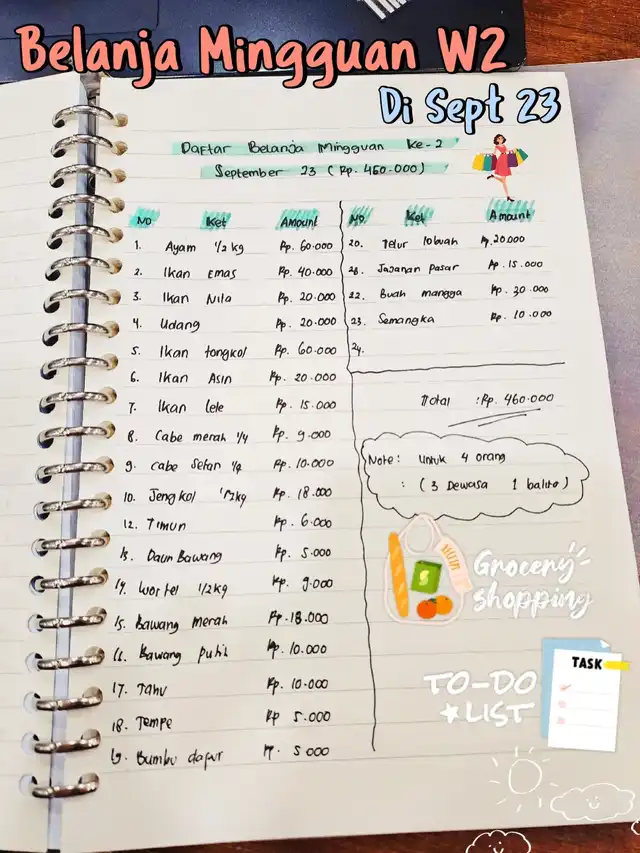 Belanja Mingguan W2
Di Sept 23
Daftar Belanja Mingguan Ke-2
September 23 (Rp. 460.000)
No Ket Amount
1. Ayam 1/2 kg Rp. 60.000
2. Ikan Emas Rp. 40.000
3. Ikan Nila Rp. 20.000
4. Udang Rp. 20.000
5. Ikan tongkol Rp. 60.000
6. Ikan Asin Rp. 20.000
7. Ikan lele Rp. 15.000
8. Cabe merah 1/4 Rp. 9.000
9. cabe setan 1/4 Rp. 10.000
10. Jengkol 1/2kg Rp. 18.000
12. Timun Rp. 6.000
13. Daun Bawang Rp. 5.000
14. Wortel 1/2kg Rp. 9.000
15. Bawang merah Rp. 18.000
16. Bawang putih Rp. 10.000
17. Tahu Rp. 10.000
18. Tempe Rp 5.000
19. Bumbu dapur Rp. 5000
No. Ket Amount
20. Telur 10buah Rp. 20.000
Jajanan pasar Rp. 15.000
22. Buah mangga Rp. 30.000
23. Semangka Rp. 10.000
24.
Total : Rp. 460.000
Note : Untuk 4 orang
: (3 Dewasa 1 balita)
Grocery
shopping
TASK
TO-DO
LIST